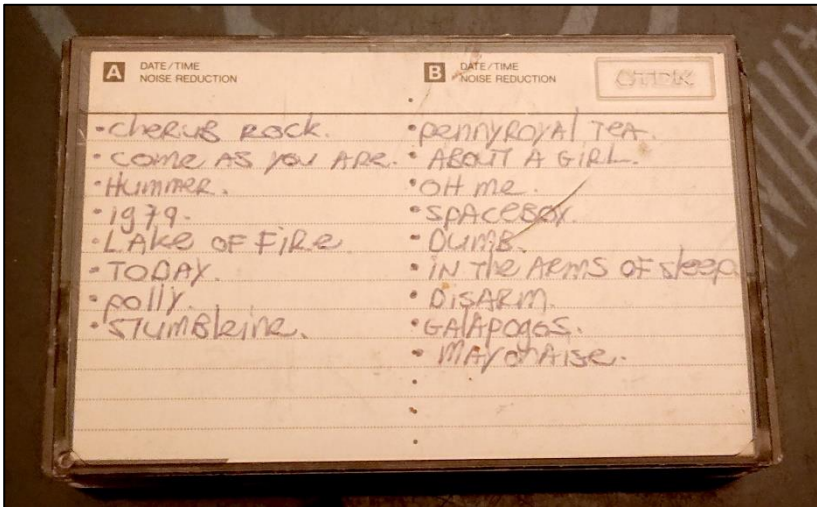 A DATE/TIME
NOISE REDUCTION
• cherub Rock.
• come AS you ARE.
• Hummer.
• 1979.
• LAKE OF FIRe
• TODAY.
• polly.
• STUMBleine.
B DATE/TIME
NOISE REDUCTION
⊙TDK
• pennyROyAl TeA.
• ABOUT A GIRL.
• OH me.
• SpAceBoy.
• DUMB.
• IN THe ARMS OF sleep.
• DISARM.
• GAlApogos.
• MAyonAise.